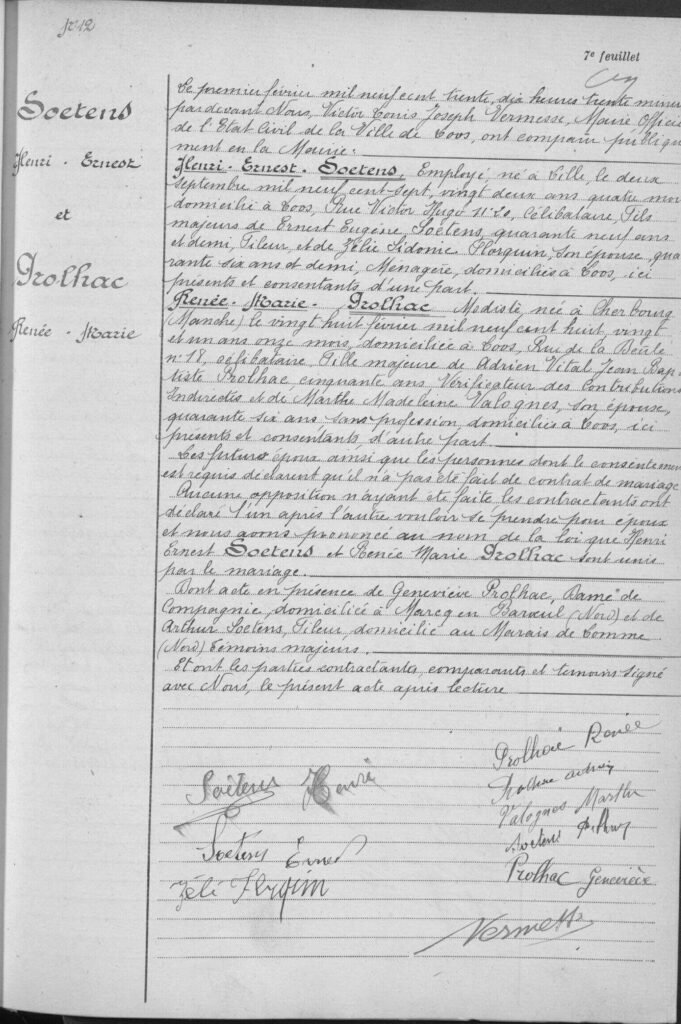 N° 12
7e feuillet
Soetens
Henri - Ernest
et
Prolhac
Renée - Marie
Le premier février mil neuf cent trente, dix heures trente minu
pardevant Nous, Victor Louis Joseph Vermesse, Maire Officie
de l'Etat Civil de la Ville de Loos, ont comparu publique
ment en la Mairie:
Henri - Ernest - Soetens, Employé, né à Lille, le deux
septembre mil neuf cent sept, vingt deux ans quatre moi
domicilié à Loos, Rue Victor Hugo n° 20, Célibataire, Fils
majeurs de Ernest Eugène, Soetens, quarante neuf ans
et demi, Fileur, et de Zélie Sidonie Florquin, son épouse, qua
rante six ans et demi, Ménagère, domiciliés à Loos, ici
présents et consentants, d'une part.
Renée - Marie - Prolhac Modiste, née à Cherbourg
(Manche) le vingt huit février mil neuf cent huit, vingt
et un ans onze mois, domiciliée à Loos, Rue de la Beule
n° 18, célibataire Fille majeure de Adrien Vital Jean Bap
tiste Prolhac, cinquante ans, Vérificateur des Contributions
Indirectes et de Marthe Madeleine Valognes, son épouse,
quarante six ans sans profession, domiciliés à Loos, ici
présents et consentants, d'autre part
Les futurs époux ainsi que les personnes dont le consentemen
est requis déclarent qu'il n'a pas été fait de contrat de mariage
Aucune opposition n'ayant été faite les contractants ont
déclaré l'un après l'autre vouloir se prendre pour époux
et nous avons prononcé au nom de la loi que Henri
Ernest Soetens et Renée Marie Prolhac sont unis
par le mariage.
Dont acte en présence de Geneviève Prolhac, Dame de
Compagnie, domiciliée à Marcq en Baroeul (Nord) et de
Arthur Soetens, Fileur, domicilié au Marais de Lomme
(Nord) témoins majeurs.
Et ont les parties contractantes, comparants et témoins signé
avec Nous, le présent acte après lecture
Prolhac Renée
Soetens Henri
Prolhac
Valognes Marthe
Soetens Arthur
Soetens Ernest
Prolhac Geneviève
Zélie
Vermesse